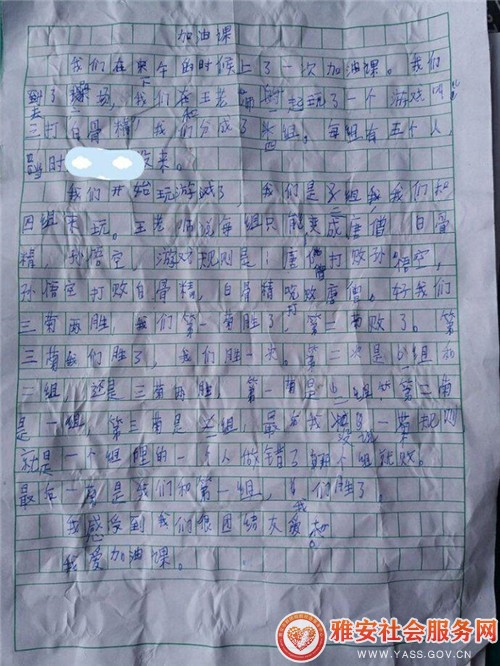 加油课
我们在下午的时候上了一次加油课。我们
到了操场,我们和王老师一起玩了一个游戏
三打白骨精,我们分成了六组,每组有五个人,
当时 没来。
我们开始玩游戏了,我们是 组我们和
四组来玩。王老师说每组只能变成唐僧,白骨
精,孙悟空,游戏规则是:唐僧打败孙悟空,
孙悟空打败白骨精,白骨精吃败唐僧。我们
三局两胜,我们第一局胜了,第二局败了。第
三局我们胜了,我们胜一次。第二次是 组和
二组,还是三局两胜,第一局是 组 第二局
是一组,第三局是 组,最后 一局规则
就是一个组里的一个人做错了 个组就败。
最后一局是我们和第一组,我们胜了。
我感受到我们很团结友爱
我爱加油课。
雅安社会服务网
WWW.YASS.GOV.CN